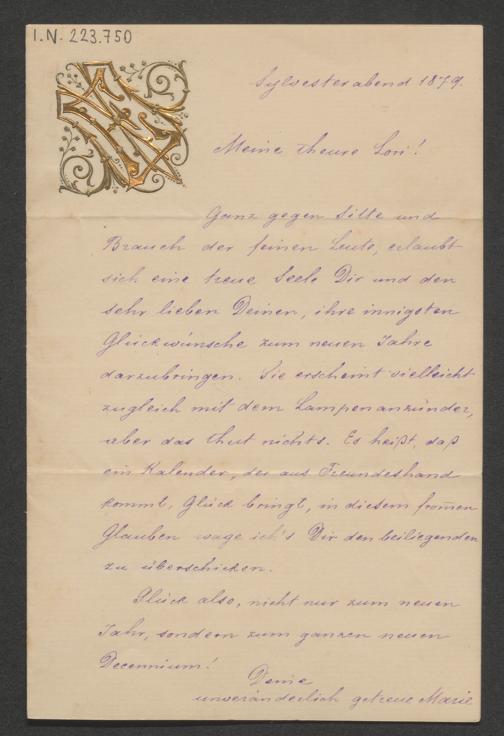 I.N. 223.750
Sylvesterabend 1879.
Meine theure Lori!
Ganz gegen Sitte und
Brauch der feinen Leute, erlaubt
sich eine treue Seele Dir und den
sehr lieben Deinen, ihre innigsten
Glückwünsche zum neuen Jahre
darzubringen. Sie erscheint vielleicht
zugleich mit dem Lampenanzünder,
aber das thut nichts. Es heißt, daß
ein Kalender, der aus Freundeshand
kommt, Glück bringt, in diesem from̄en
Glauben wage ich's Dir den beiliegenden
zu überschicken.
Glück also, nicht nur zum neuen
Jahr, sondern zum ganzen neuen
Decennium!
Deine
unveränderlich getreue Marie